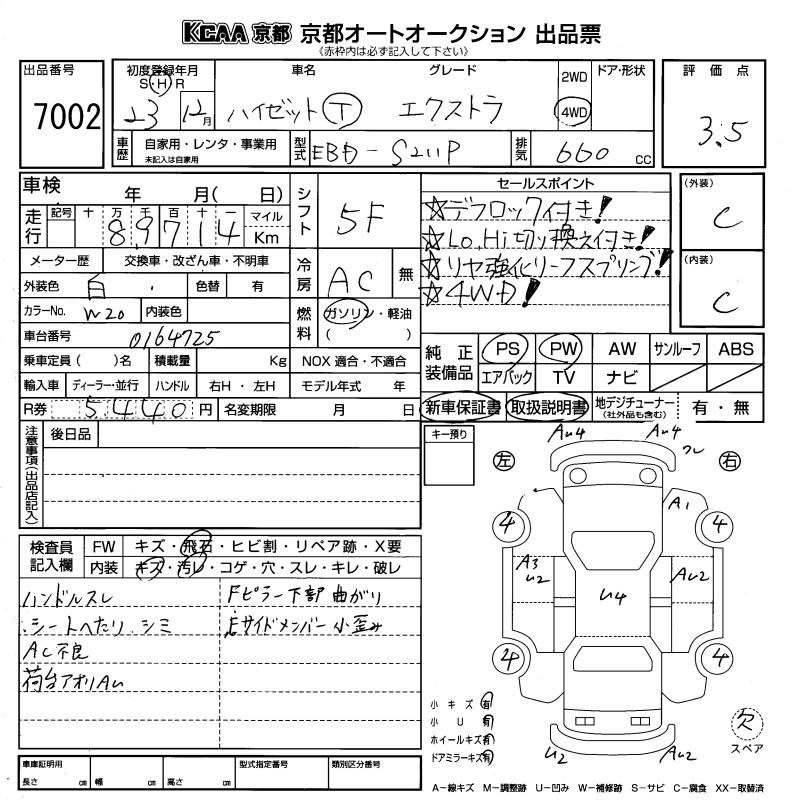 KCAA 京都 京都オートオークション 出品票
《赤枠内は必ず記入して下さい》
出品番号 初度登録年月 車名 グレード 2WD ドア・形状 評価点
S・H
7002 23 12月 ハイゼット T エクストラ 4WD 3.5
車歴 自家用・レンタ・事業用 未記入は自家用 型式 EBD-S211P 排気 660 CC
車検 年 月( 日) シフト 5F セールスポイント (外装)
走行 記号 十 万 千 百 十 一 マイル
89714 Km
☆デフロック付き! C
☆Lo.Hi切り換え付き!
メーター歴 交換車・改ざん車・不明車 冷房 AC 無 ☆リヤ強化リーフスプリング! (内装)
外装色 白 色替 有 ☆4WD! C
カラーNo. W20 内装色 燃料 ガソリン・軽油
( )
車台番号 0164725
純正装備品 PS PW AW サンルーフ ABS
乗車定員( )名 積載量 Kg NOX 適合・不適合
エアバック TV ナビ
輸入車 ディーラー・並行 ハンドル 右H・左H モデル年式 年
R券 5440円 名変期限 月 日 新車保証書 取扱説明書 地デジチューナー (社外品も含む) 有・無
注意事項(出品店記入) 後日品 キー預り
Au4 Au4
左 右
フレ
4 A1 4
検査員記入欄 FW キズ・飛石・ヒビ割・リペア跡・X要
内装 キズ・汚レ・コゲ・穴・スレ・キレ・破レ
A3 U2 U4 AU2
ハンドルスレ Fピラー下部 曲がり
シートへたり シミ Fサイドメンバー 小歪み
AC不良
荷台アオリAU
4 4
小キズ 有
小U 有
ホイールキズ 有
ドアミラーキズ 有
欠
スペア
U2 AU2
車庫証明用 型式指定番号 類別区分番号
長さ cm 幅 cm 高さ cm
A-線キズ M-調整跡 U-凹み W-補修跡 S-サビ C-腐食 XX-取替済